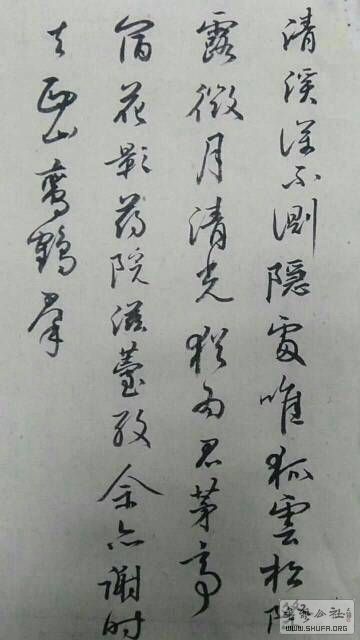 清溪深不测隐處唯孤雲松際
露微月清光猶为君茅亭
宿花影药院滋薹纹余亦谢时
去西山鸾鹤群
公社
WWW.SHUFA.ORG